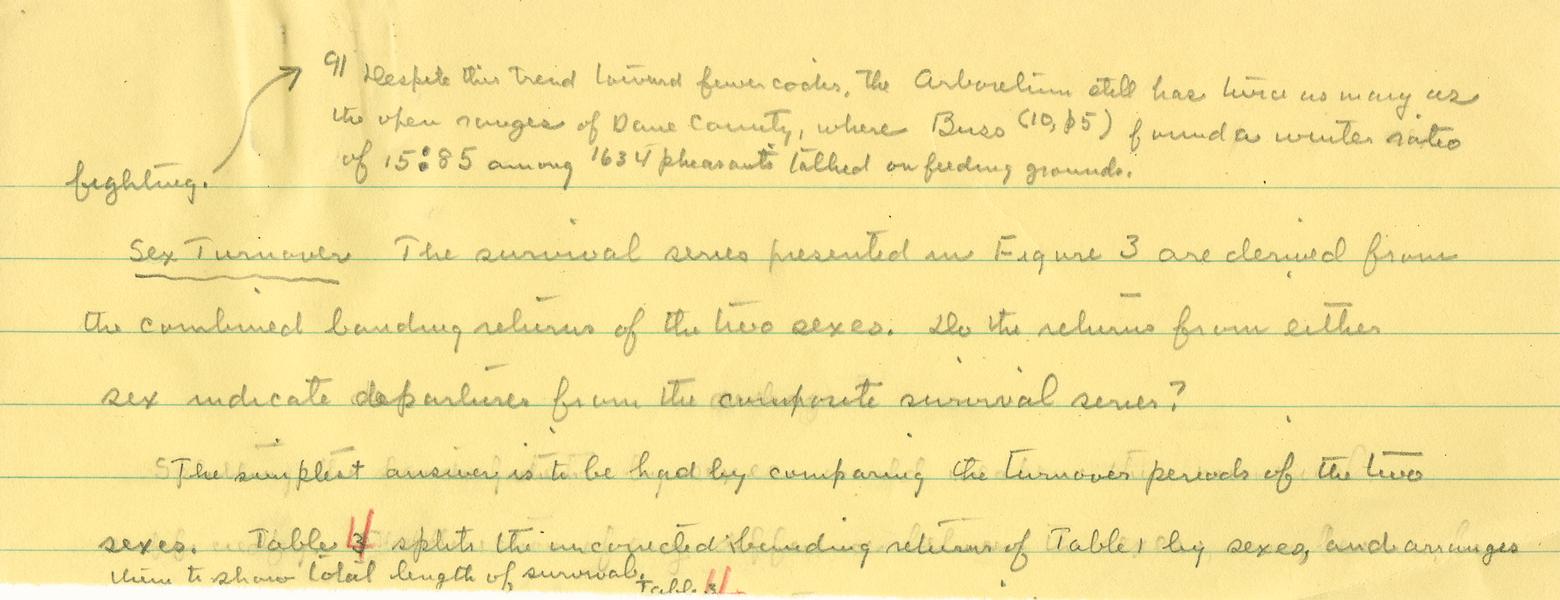 ¶ Despite this trend toward fewer cocks, the Arboretum still has twice as many as
the open ranges of Dane County, where Buss (10, p5) found a winter ratio
of 15:85 among 1634 pheasants tallied on feeding grounds.
fighting.
Sex Turnover The survival series presented in Figure 3 are derived from
the combined banding returns of the two sexes. Do the returns from either
sex indicate departures from the composite survival series?
The simplest answer is to be had by comparing the turnover periods of the two
sexes. Table 4 splits the uncorrected banding returns of Table 1 by sexes, and arranges
them to show total length of survival.
Table 4